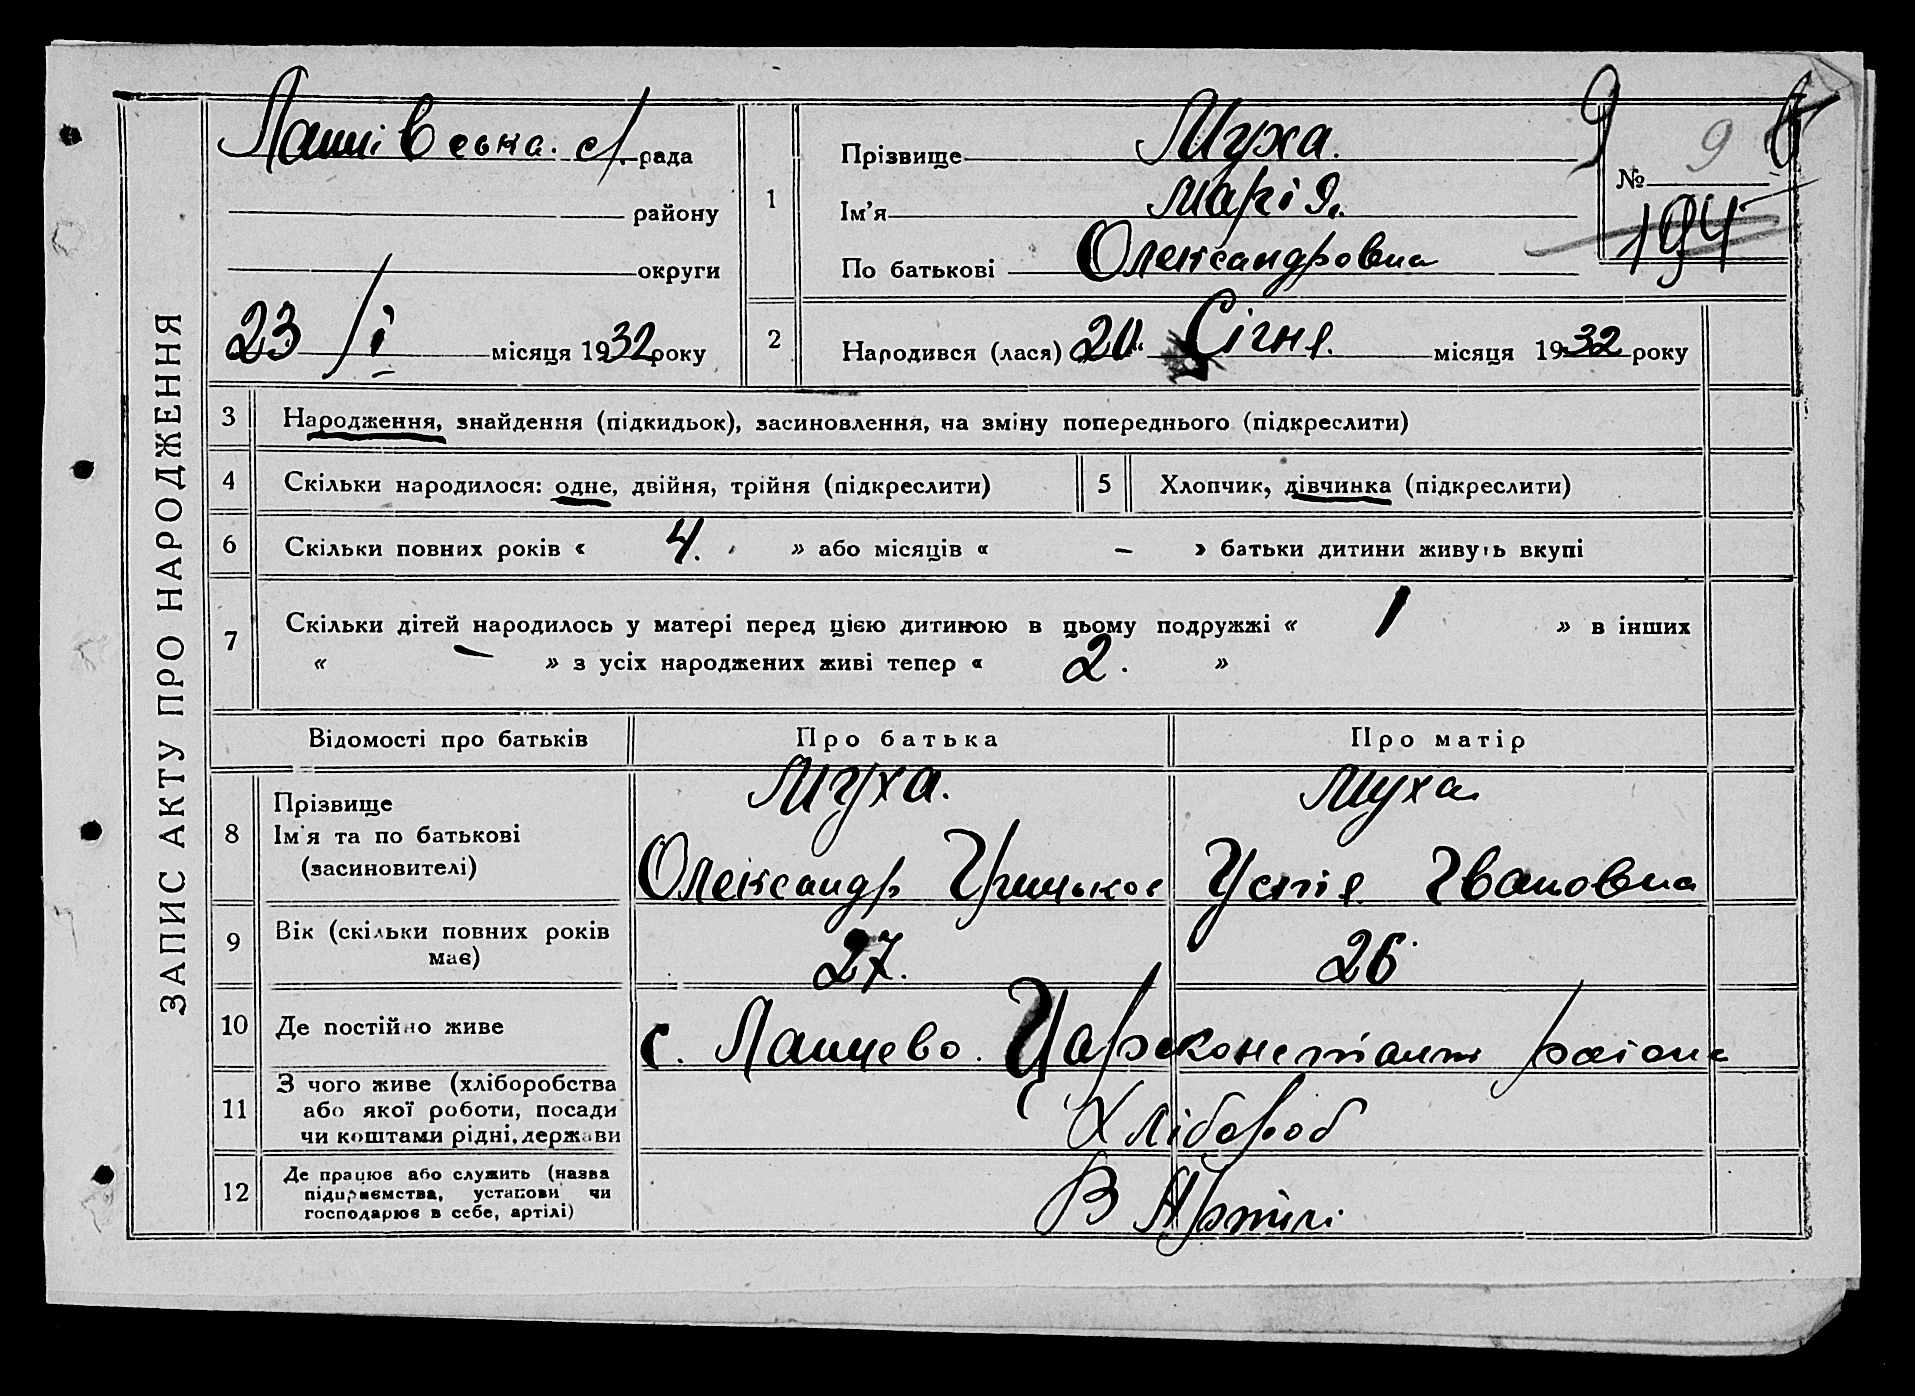 ЗАПИС АКТУ ПРО НАРОДЖЕННЯ
с/рада
району
округи
23/І місяця 1932 року
1
Прізвище Муха.
Ім'я Марія.
По батькові Олександровна
№ 9
194
2
Народився (лася) 20. Січня. місяця 1932 року
3 Народження, знайдення (підкидьок), засиновлення, на зміну попереднього (підкреслити)
4 Скільки народилося: одне, двійня, трійня (підкреслити)
5 Хлопчик, дівчинка (підкреслити)
6 Скільки повних років « 4. » або місяців « – » батьки дитини живуть вкупі
7 Скільки дітей народилось у матері перед цією дитиною в цьому подружжі « 1 » в інших
« – » з усіх народжених живі тепер « 2. »
Відомості про батьків Про батька Про матір
8 Прізвище
Ім'я та по батькові
(засиновителі)
Муха. Муха
Олександр Грицьков Устія Івановна
9 Вік (скільки повних років
має)
27. 26
10 Де постійно живе
с. Лащево. Царəконстант района
11 З чого живе (хліборобства
або якої роботи, посади
чи коштами рідні, держави
Хлібороб
12 Де працює або служить (назва
підприємства, установи чи
господарює в себе, артілі)
В Артілі